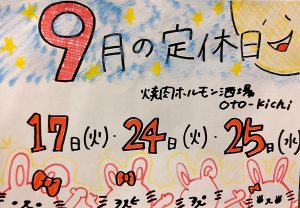 9月の定休日
焼肉ホルモン酒場
oto-kichi
17日(火)・24日(火)・25日(水)